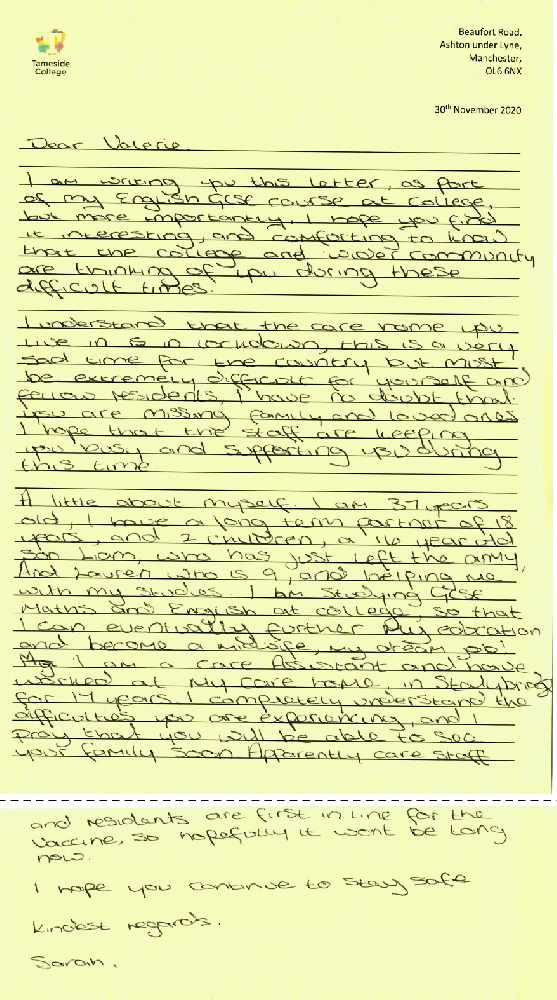 Tameside
College
Beaufort Road,
Ashton under Lyne,
Manchester,
OL6 6NX
30th November 2020
Dear Valerie
I am writing you this letter, as part
of my English GCSE course at college,
but more importantly, I hope you find
it interesting, and comforting to know
that the college and wider community
are thinking of you during these
difficult times.
I understand that the care home you
live in is in lockdown, this is a very
sad time for the country but must
be extremely difficult for yourself and
fellow residents, I have no doubt that
you are missing family and loved ones
I hope that the staff are keeping
you busy and supporting you during
this time
A little about myself. I am 37 years
old, I have a long term partner of 18
years, and 2 children, a 16 year old
son Liam, who has just left the army,
And Lauren who is 9, and helping me
with my studies I am studying GCSE
Maths and English at college, so that
I can eventually further my education
and become a midwife, my dream job!
I am a care Assistant and have
worked at my care home, in Stalybridge
for 17 years I completely understand the
difficulties you are experiencing, and I
pray that you will be able to see
your family soon Apparently care staff
and residents are first in line for the
vaccine, so hopefully it wont be long
now.
I hope you continue to stay safe
kindest regards.
Sarah.